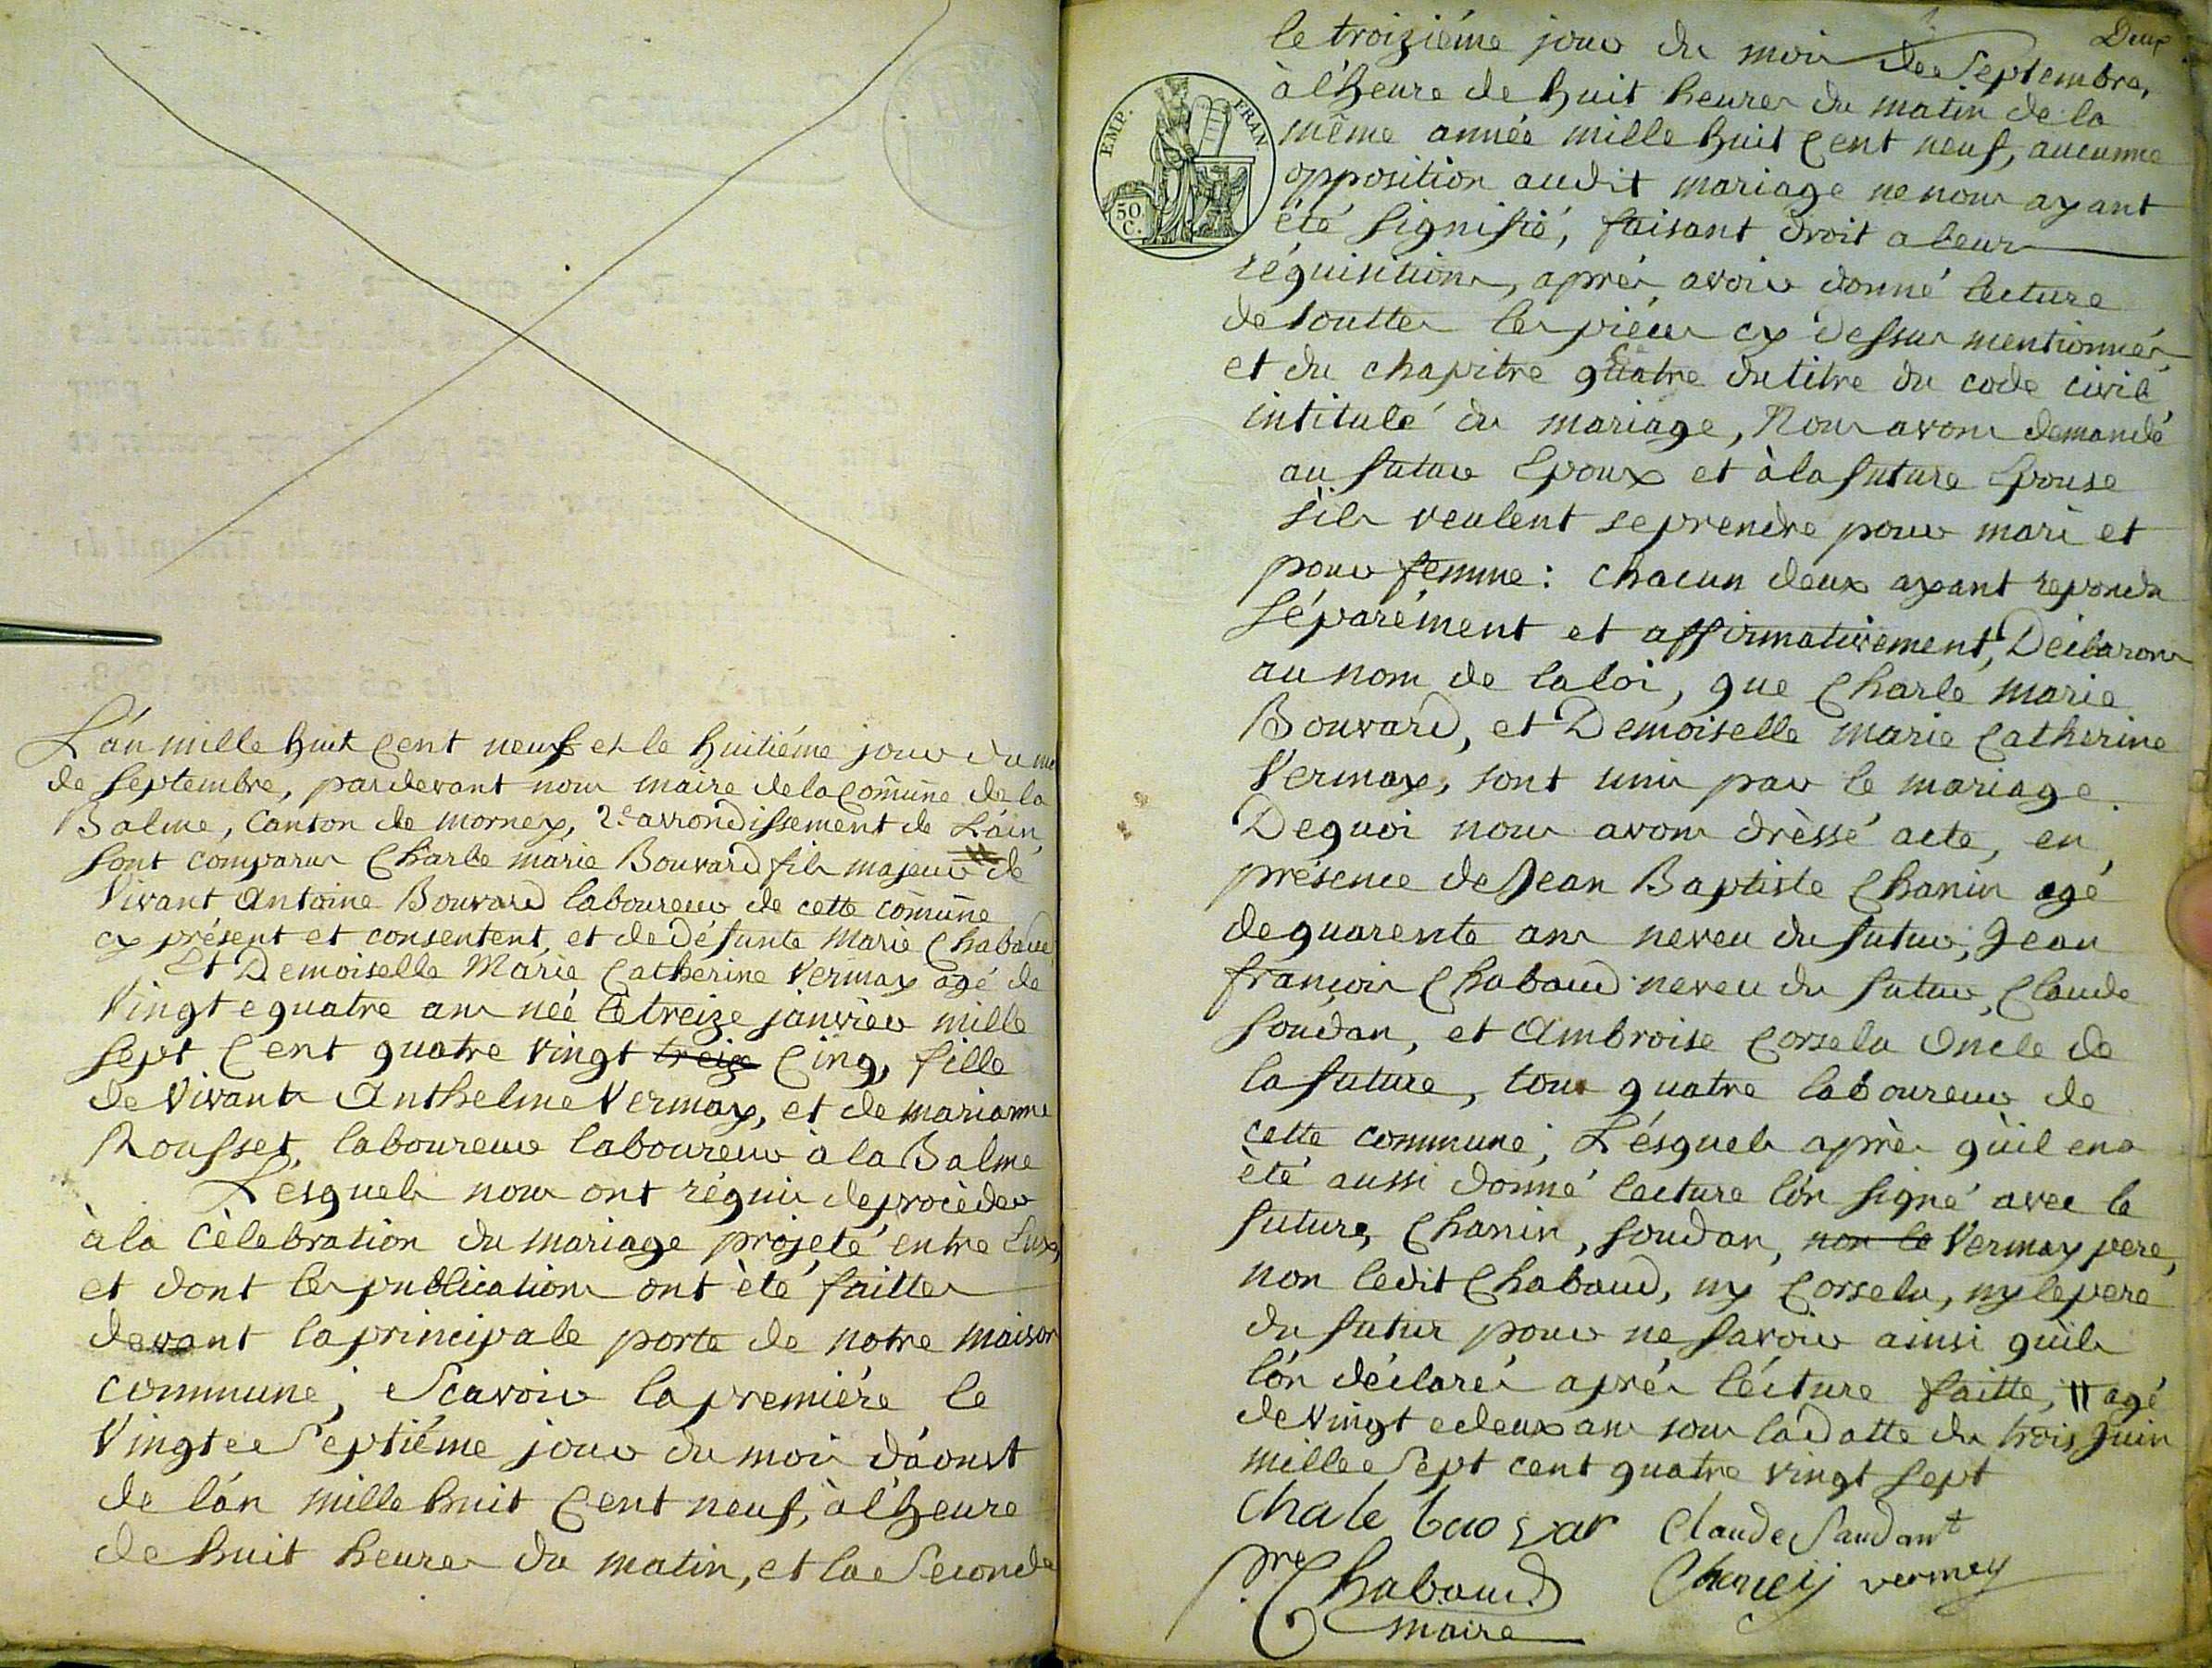 L'an mille huit Cent neuf et le huitiéme jour du mo
de Septembre, pardevant nous maire de la Com̃une de la
Balme, Canton de mornex, 2e arrondissement de L'ain,
sont comparus Charle marie Bouvard fils majeur // de
Vivant Antoine Bouvard laboureur de cette com̃une
cy présent et consentent, et de Défunte Marie Chabaud
Et Demoiselle Marie Catherine Vermay agé de
Vingt e quatre ans neé le treize janvier mille
sept Cent quatre vingt treize Cinq, fille
de Vivants Anthelme Vermay, et de marianne
Rousset, laboureur laboureur à la Balme
Lesquels nous ont réquis de procèder
à la Cèlebration du mariage projeté entre Eux,
et dont les publications ont èté faittes
devant la principale porte de notre maison
commune; Scavoir la premiére le
Vingt e Septiéme jour du mois d'aoust
de l'an mille huit Cent neuf, à l'heure
de huit heures du matin, et la Seconde
Deux
le troiziéme jour du mois de Septembre,
à l'heure de huit heures du matin de la
même année mille huit Cent neuf, aucunne
opposition audit mariage ne nous ayant
été signifié, faisant droit a leurs
réquisitions, aprés avoir donné lecture
de touttes les piéces cy dessus mentionnés,
et du chapitre quatre du titre du code civil
intitulé du mariage, Nous avons demandé
au futur Epoux et à la future Epouse
s'ils veulent se prendre pour mari et
pour femme: chacun deux ayant repondu
Séparément et affirmativement, Déclarons
au nom de la loi, que Charle marie
Bouvard, et Demoiselle marie Catherine
Vermay, sont unis par le mariage.
De quoi nous avons drèssé acte, en
présence de Jean Baptiste Chanin agé
de quarente ans neveu du futur, Jean
françois Chabaud neveu du futur, Claude
Soudan, et Ambroise Corselu Oncle de
la future, tous quatre laboureur de
cette commune; Lésquels après qu'il en a
été aussi donné lecture l'on signé avec le
future, Chanin, Soudan, non le Vermay pere,
non ledit Chabaud, ny Corselu, ny le pere
du futur pour ne savoir ainsi qu'ils
l'on déclarés aprés lécture faitte, // agé
de Vingt e deux ans sous la datte du trois Juin
mille Sept cent quatre vingt sept
EMP. FRAN.
50 C.
Claude Saudant
Chabaud vermey
maire